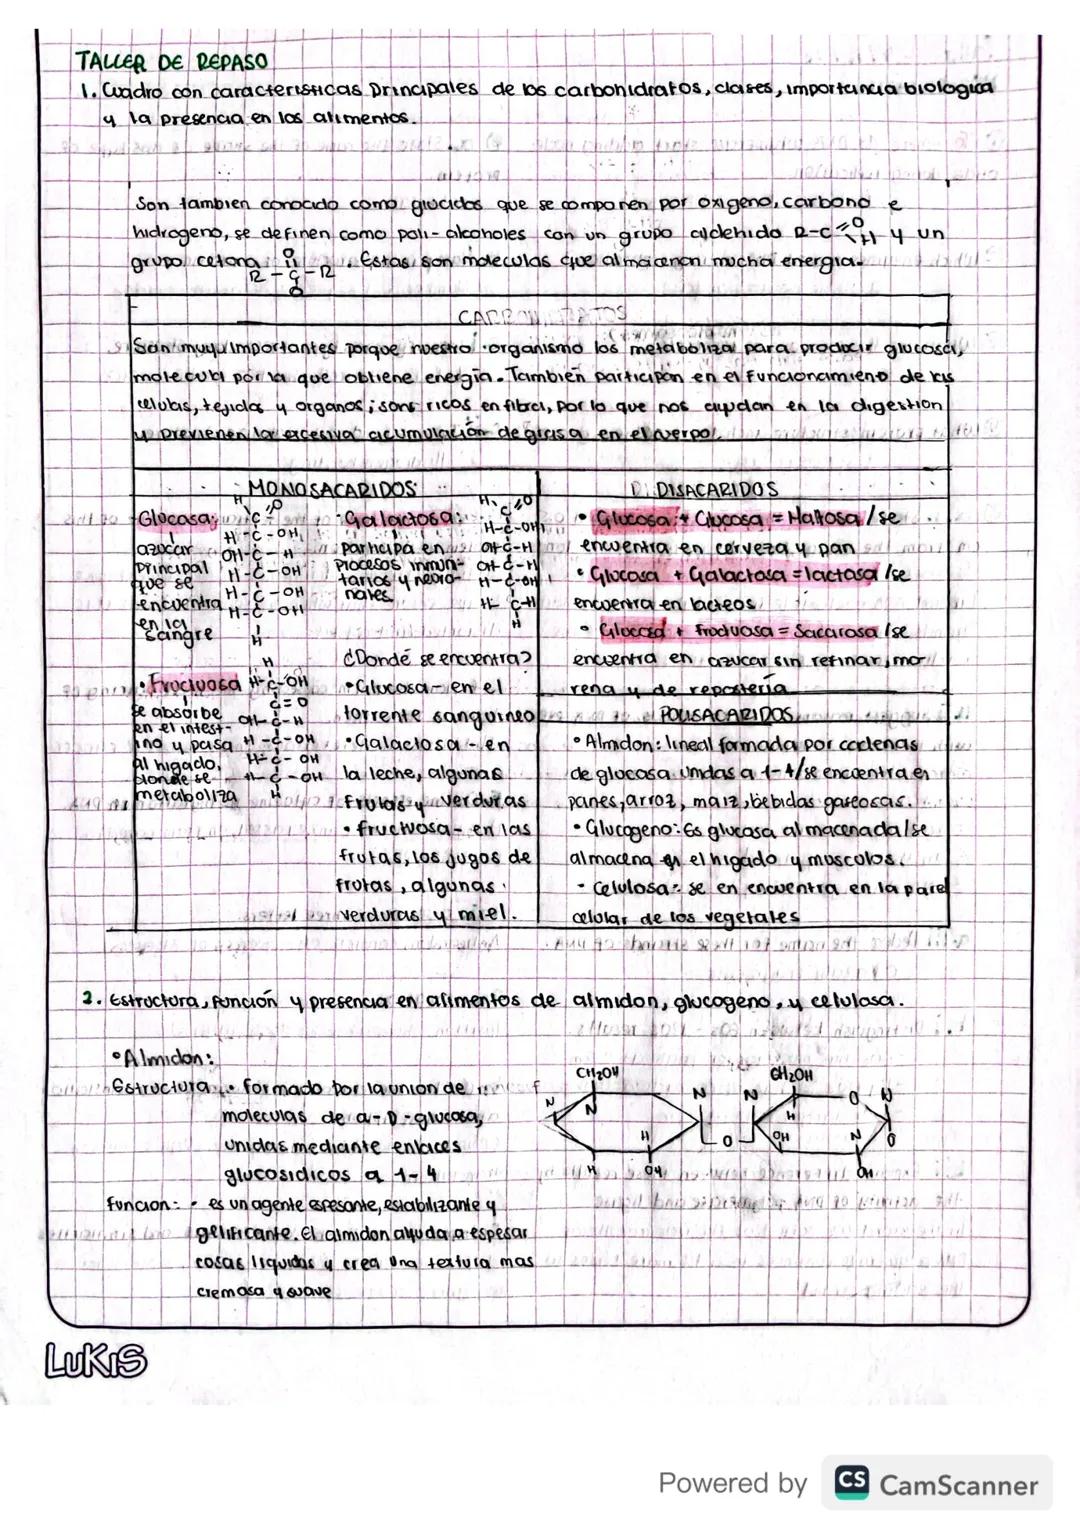 TALLER DE REPASO
1. Cuadro con caracteristicas Principales de los carbohidratos, clases, importancia biologica
y la presencia en los alimentos.
Son tambien conocido como glucidos que se componen por oxigeno, carbono e
hidrogeno, se definen como poli-alcoholes con un grupo aldehido R-C=O H y un
grupo cetona O R-C-R. Estas son moleculas que almacenan mucha energia.
CARBOHIDRATOS
Son muy importantes porque nuestro organismo los metaboliza para producir glucosa,
molecula por la que obtiene energia. También participan en el funcionamieno de las
celulas, tejidos y organos; sons ricos en fibra, por lo que nos ayudan en la digestion
y previenen la excesiva acumulación de grasa en el cuerpo.
MONOSACARIDOS
Glucosa:
azucar
principal
que se
encuentra
en la
sangre
H O
C
H-C-OH
OH-C-H
H-C-OH
H-C-OH
H-C-OH
H
Galactosa:
participa en
procesos inmun-
tarios y neuro-
nales
H O
C
H-C-OH
OH-C-H
OH-C-H
H-C-OH
H C-H
H
• Fructuosa
se absorbe
en el intest-
ino y pasa
al higado,
donde se
metaboliza
H
H-C-OH
C=O
OH-C-H
H-C-OH
H-C-OH
H-C-OH
H
¿Donde se encuentra?
• Glucosa- en el
torrente sanguineo
• Galactosa- en
la leche, algunas
frutas y verduras
• fructuosa- en las
frutas, los jugos de
frutas, algunas
verduras y miel.
DISACARIDOS
• Glucosa + Glucosa = Maltosa /se
encuentra en cerveza y pan
• Glucosa + Galactosa = lactosa /se
encuentra en lacteos
• Glucosa + fructuosa = Sacarosa /se
encuentra en azucar sin refinar, mo
rena y de reposteria
POLISACARIDOS
• Almidon: lineal formada por cadenas
de glucosa unidas a 1-4/se encuentra en
panes, arroz, maiz, bebidas gaseosas.
• Glucogeno: Es glucosa almacenada/se
almacena en el higado y musculos.
- Celulosa: se en encuentra en la pared
celular de los vegetales
2. Estructura, función y presencia en alimentos de almidon, glucogeno, y celulosa.
• Almidon:
Estructura • formado por la union de
moleculas de a-D-glucosa,
unidas mediante enlaces
glucosidicos a 1-4
CH2OH CH2OH
N N H H OH O N N H OH O N N O OH
funcion: • es un agente espesante, estabilizante y
gelificante. El almidon ayuda a espesar
cosas liquidas y crea una textura mas
cremosa y suave
LUKIS
Powered by CS CamScanner